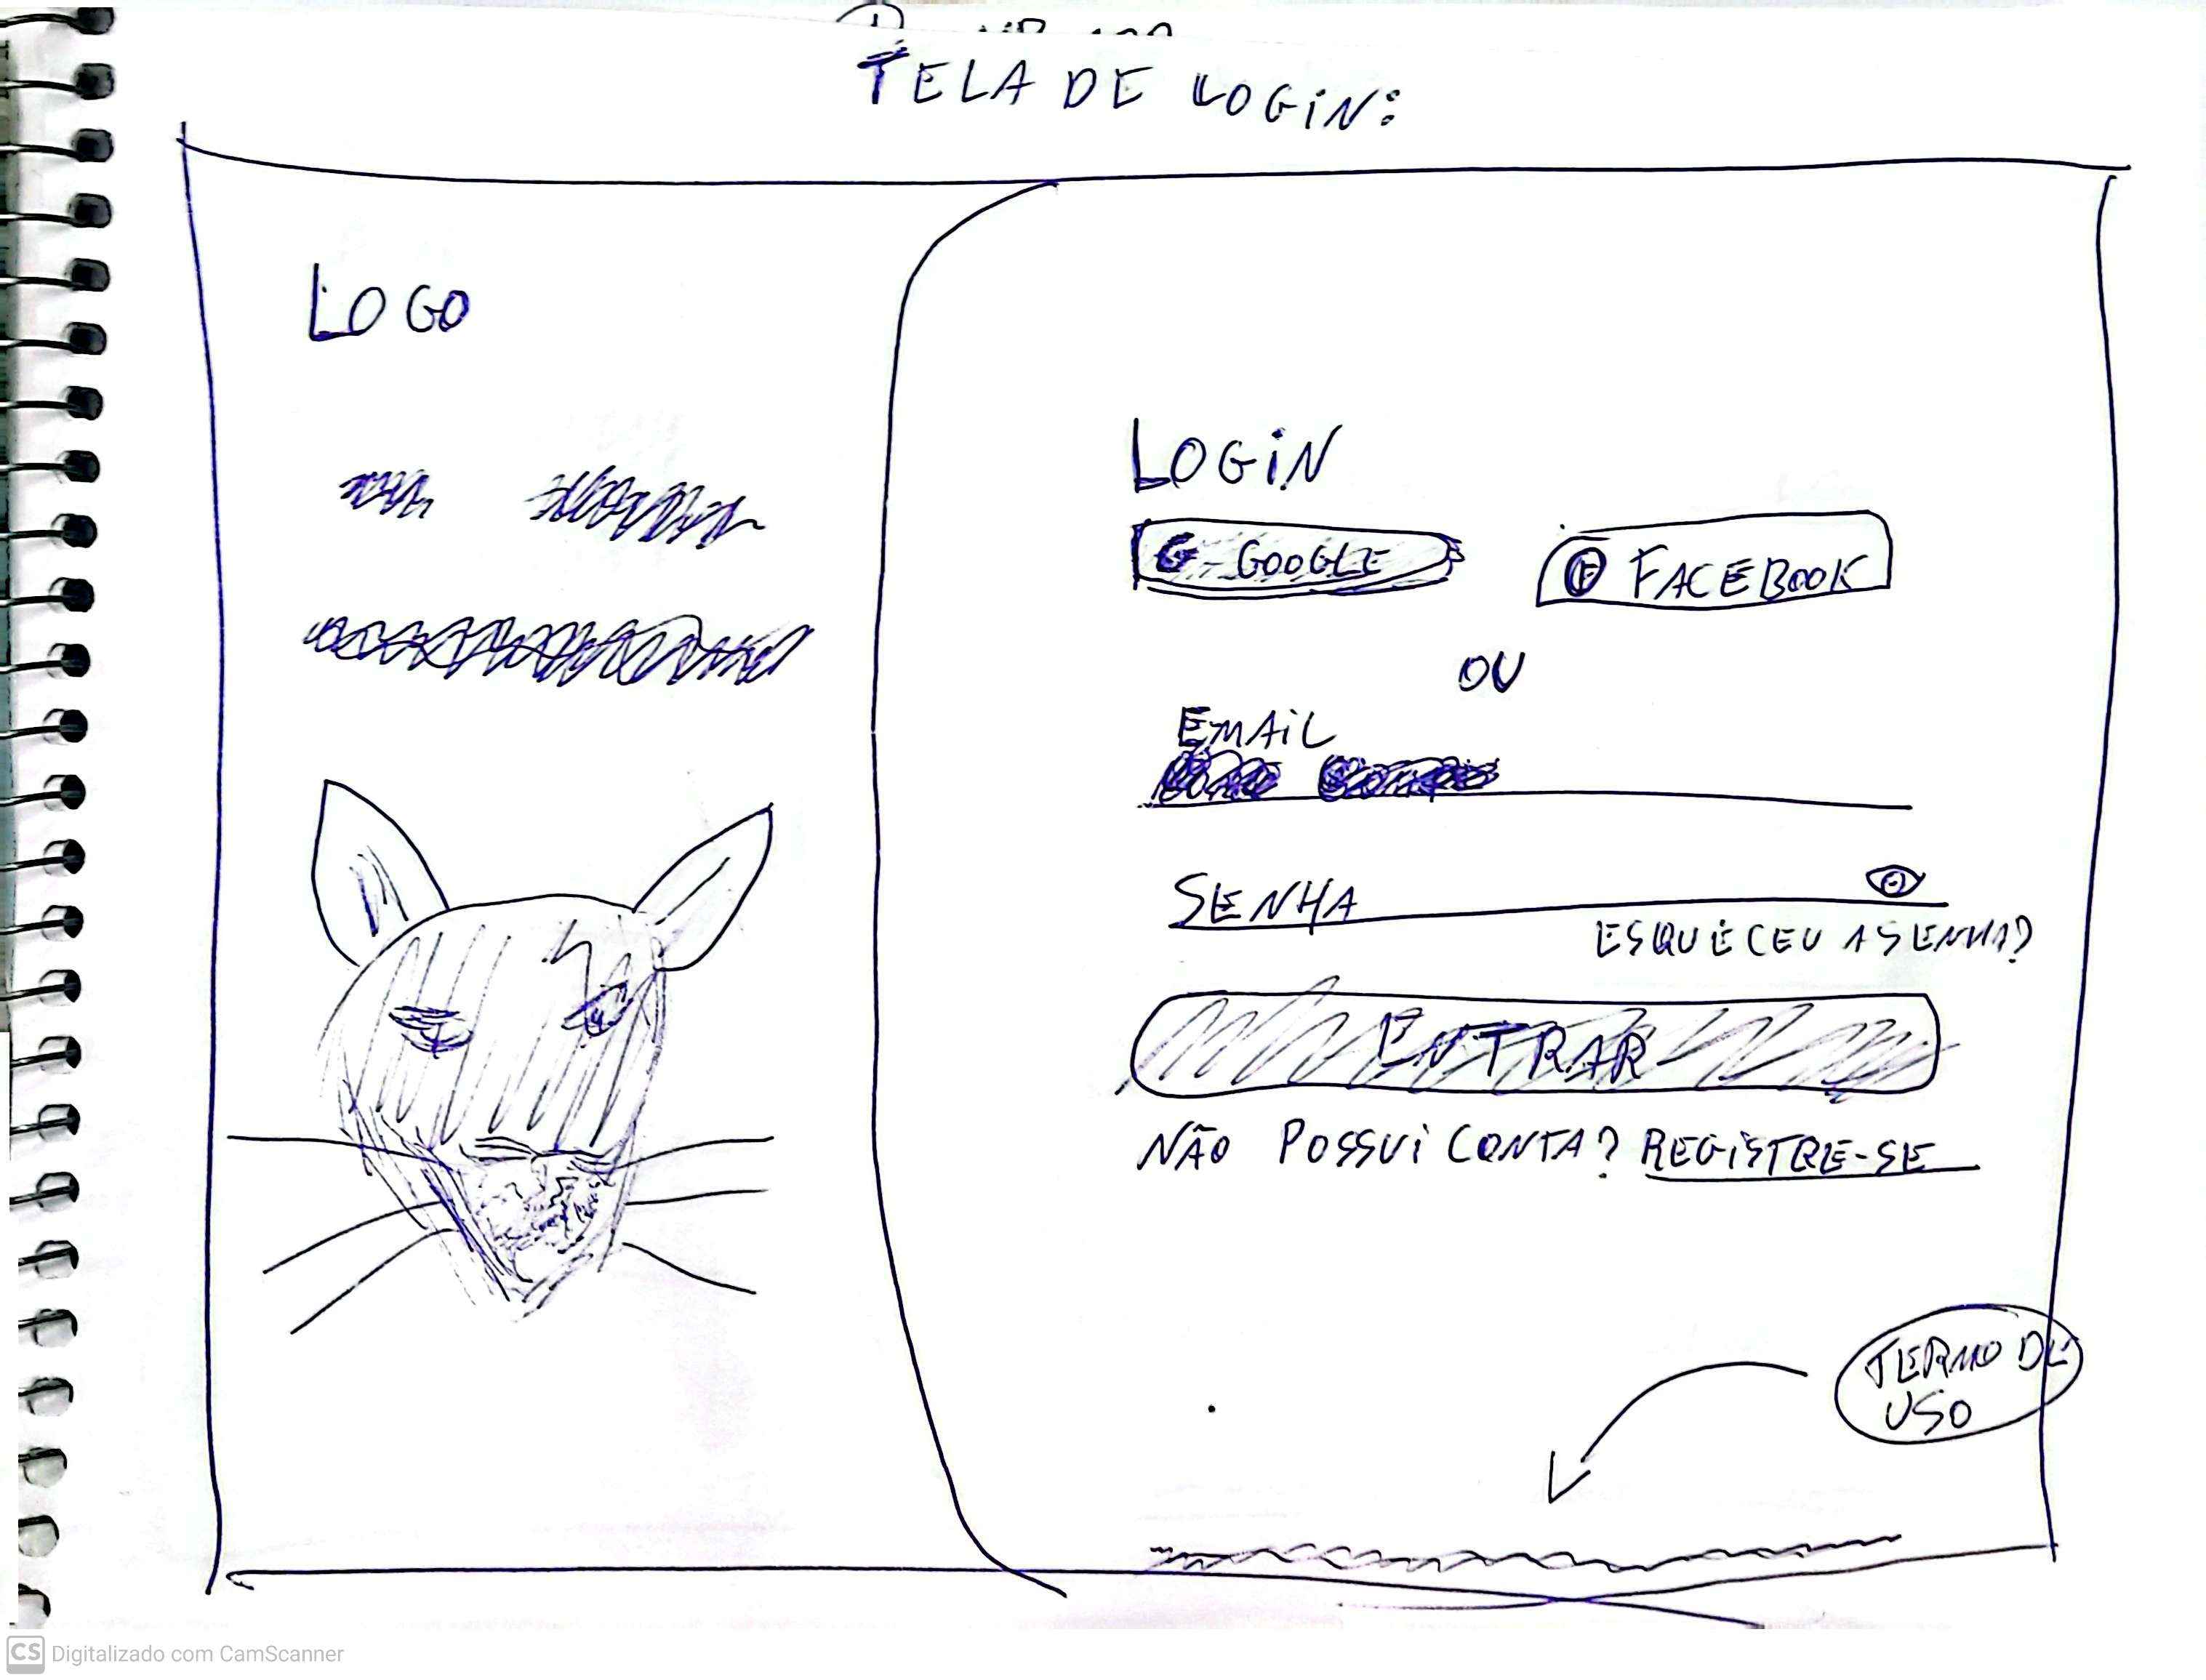 TELA DE LOGIN:
LOGO
LOGIN
G GOOGLE
F FACEBOOK
OU
EMAIL
SENHA
ESQUECEU A SENHA?
ENTRAR
NÃO POSSUI CONTA? REGISTRE-SE
TERMO DE
USO
CS Digitalizado com CamScanner